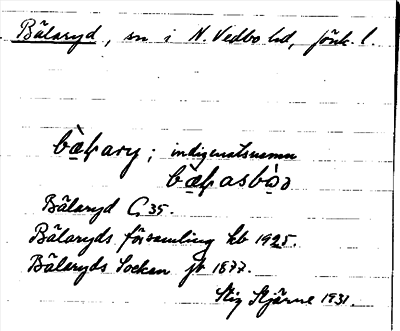 Bälaryd, sn i N. Vedbo hd, Jönk. l.
bæ̀ɫary; indigenatsnamn
bæ̀ɫasbòɔ
Bälaryd G 35.
Bälaryds församling kb 1925.
Bälaryds Socken jb 1877.
Stig Stjärne 1931.